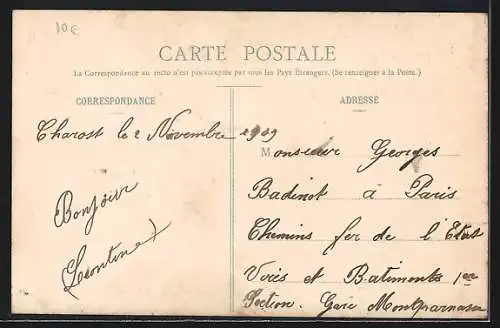 10€
CARTE POSTALE
La Correspondance au recto n'est pas acceptée par tous les Pays Etrangers. (Se renseigner à la Poste.)
CORRESPONDANCE
ADRESSE
Charost le 2 Novembre 1909
Bonjour
Leontine
Monsieur Georges
Badinot à Paris
Chemins fer de l'Etat
Voies et Batiments 1ere
Section. Gare Montparnasse